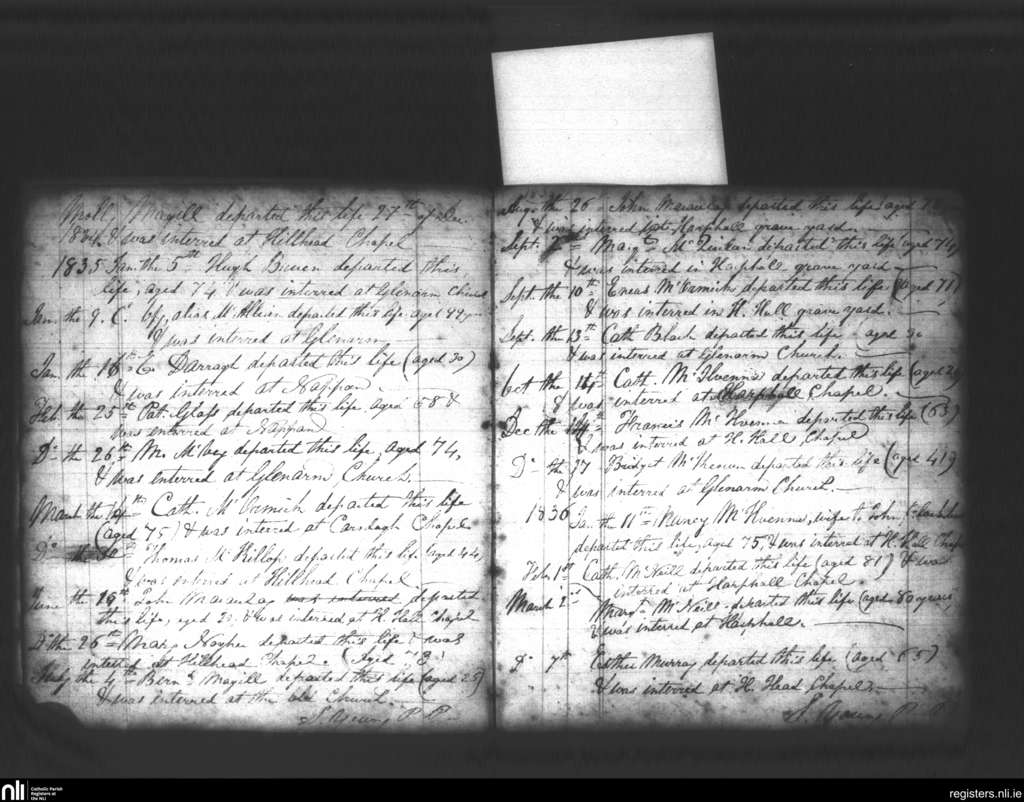 Molly Magill departed this life 27th of Dec.
1834 & was interred at Hillhead Chapel
1835 Jan. the 5th Hugh Bowen departed this
life, aged 74 & was interred at Glenarm Church
Jan. the 9. C. alias McAllean departed this life aged
& was interred at Glenarm
Jan. the 16th Darragh departed this life (aged 30)
& was interred at Nappan.
Feb. the 25th Pat. Glass departed this life aged 58 &
was enterred at Nappan
Do the 26th M. McVey departed this life, aged 74,
& was interred at Glenarm Church.
March the 14th Cath. McCormick departed this life
(aged 75) & was interred at Carnlogh Chapel
Do the Thomas McKillop departed this life (aged 44,
& was enterred at Hillhead Chapel
June the 19th John Macaulay was interred departed
this life, aged 20 & was interred at H. Hall Chapel
Do the 26th Mary departed this life & was
interred at Hillhead Chapel. (Aged 8)
July the 4th Bernd. Magill departed this life (aged 25)
& was interred at the old Church.
S. Young P. P.
Aug. the 26 John Macaulay departed this life aged
& was interred at Harphall grave yard
Sept. 2d Margt. McQuillan departed this life aged 74,
& was interred in Harphall grave yard
Sept. the 10th Eneas McCormick departed this life (aged 78)
& was interred in H. Hall grave yard.
Sept. the 13th Cath. Black departed this life (aged
& was interred at Glenarm Church.
Oct the 14th Cath. McIlvenna departed this life (aged 26)
& was enterred at Harphall Chapel.
Dec the 14th Francis McIlvenna departed this life (63)
& was interred at H. Hall Chapel
Do the 17 Bridget departed this life (aged 41)
& was interred at Glenarm Church.
1836 Jan. the 11th Nancy McIlvenna, wife to John,
departed this life, aged 75, & was interred at H. Hall Chapel
Feb. 1st Cath. McNeill departed this life (aged 81) & was
interred at Harphall Chapel.
March 2nd Margt. McNeill departed this life (aged 80 years,
& was interred at Harphall.
Do 7th Esther Murray departed this life (aged 65)
& was interred at H. Head Chapel.
S. Young P. P.
nli
Catholic Parish
Registers at
the NLI
registers.nli.ie